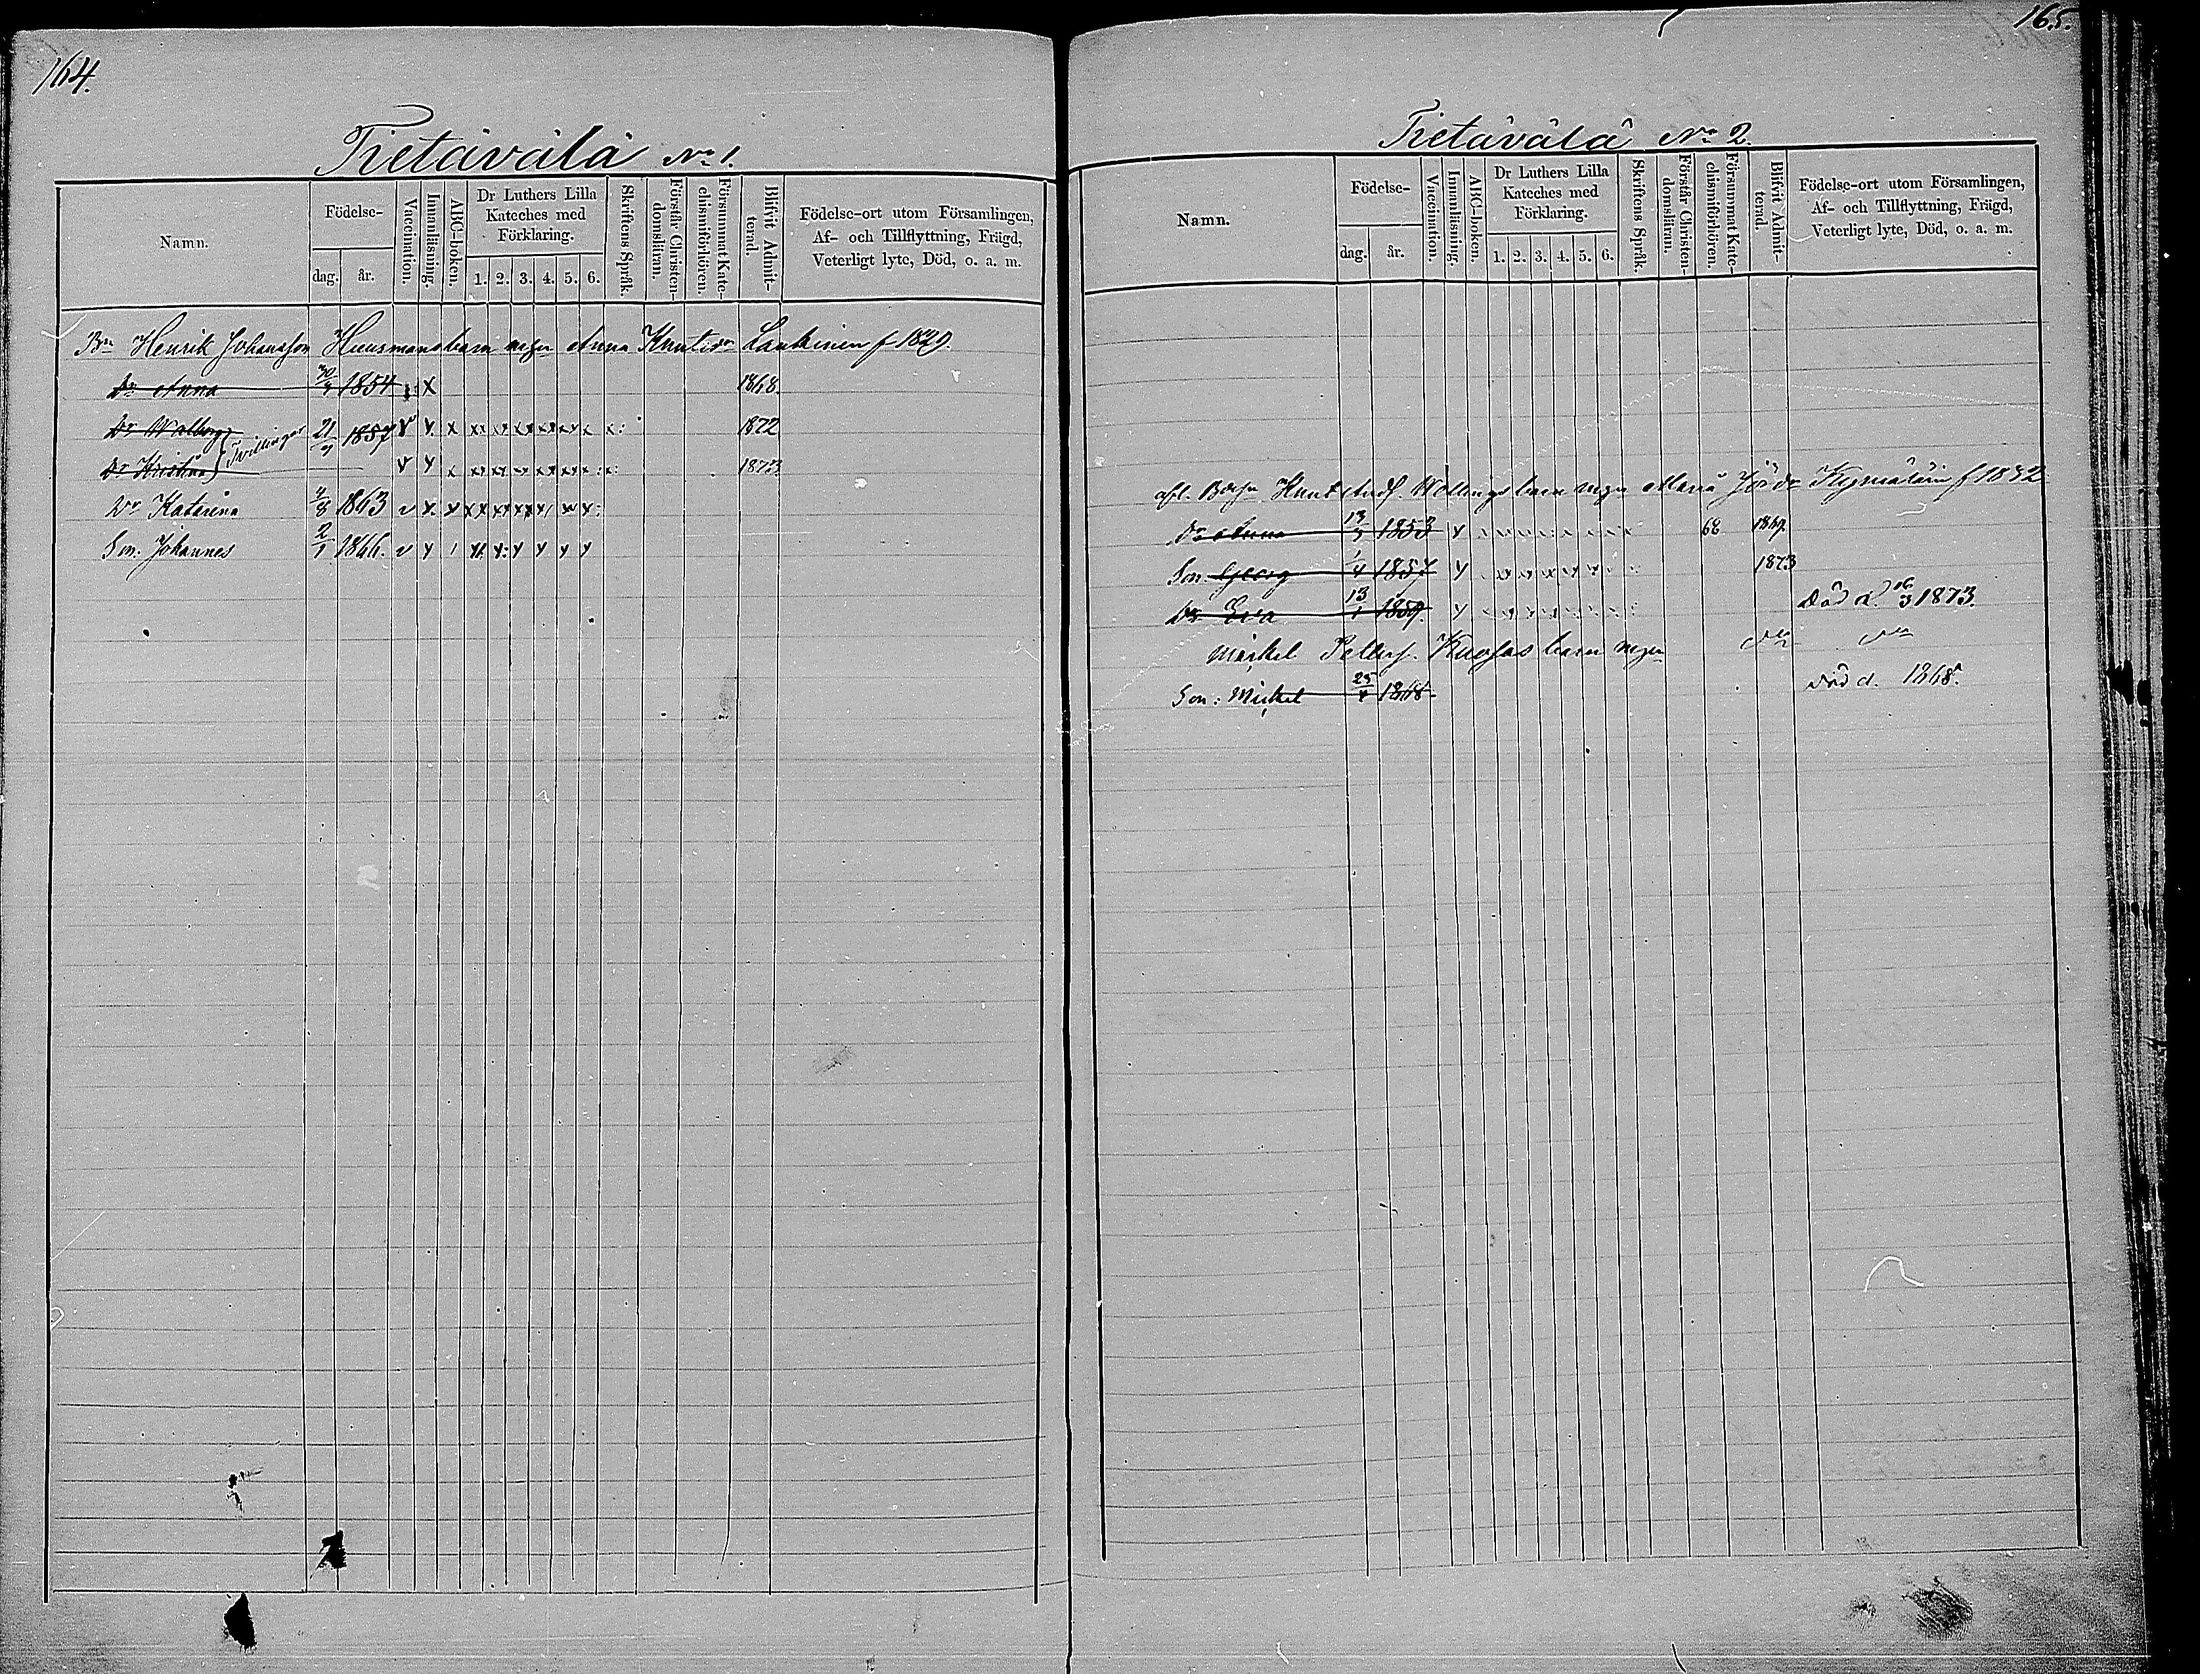 164.
Tietävälä No 1.
Namn.
Födelse-
dag. år.
Vaccination.
Innanläsning.
ABC-boken.
Dr Luthers Lilla
Kateches med
Förklaring.
1. 2. 3. 4. 5. 6.
Skriftens Språk.
Förstår Christen-
domsläran.
Försummat Kate-
chismiförhören.
Blifvit Admit-
terad.
Födelse-ort utom Församlingen,
Af- och Tillflyttning, Frägd,
Veterligt lyte, Död, o. a. m.
Bn Henrik Johansson Huusmans barn m Anna Knutsdr Laukinen f 1829.
Dr Anna 30/3 1854 X 1868.
Dr Walborg Tvillingar 21/7 1857 1872
Dr Kristina 1873
Dr Katarina 4/8 1863
Son: Johannes 2/1 1866.
165.
Tietävälä No 2.
Namn.
Födelse-
dag. år.
Vaccination.
Innanläsning.
ABC-boken.
Dr Luthers Lilla
Kateches med
Förklaring.
1. 2. 3. 4. 5. 6.
Skriftens Språk.
Förstår Christen-
domsläran.
Försummat Kate-
chismiförhören.
Blifvit Admit-
terad.
Födelse-ort utom Församlingen,
Af- och Tillflyttning, Frägd,
Veterligt lyte, Död, o. a. m.
afl. Knut Andf. barn Maria f 1832
Dr Anna 13/3 1853 68 1867.
Son: Georg 1/4 1857 1873
Dr Eva 13/1 1859. Död d. 16/3 1873.
Michel Petterf. barn
Son: Mickel 25/4 1868 död d. 1868.